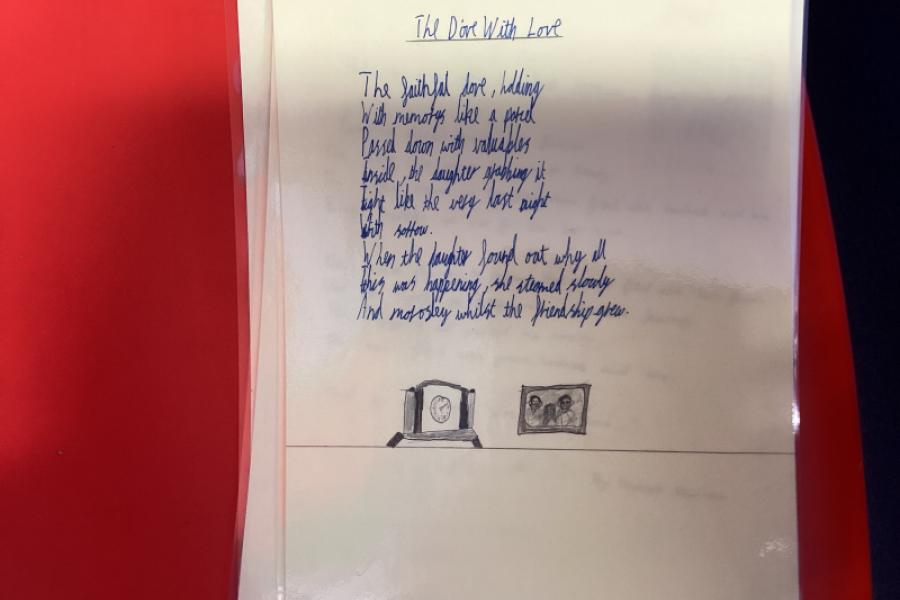 The Dove With Love
The faithful dove, holding
With memorys like a parcel
Passed down with valuables
Inside, the daughter grabbing it
tight like the very last night
With sorrow.
When the daughter found out why all
this was happening, she steamed slowly
And morosley whilst the friendship grew.